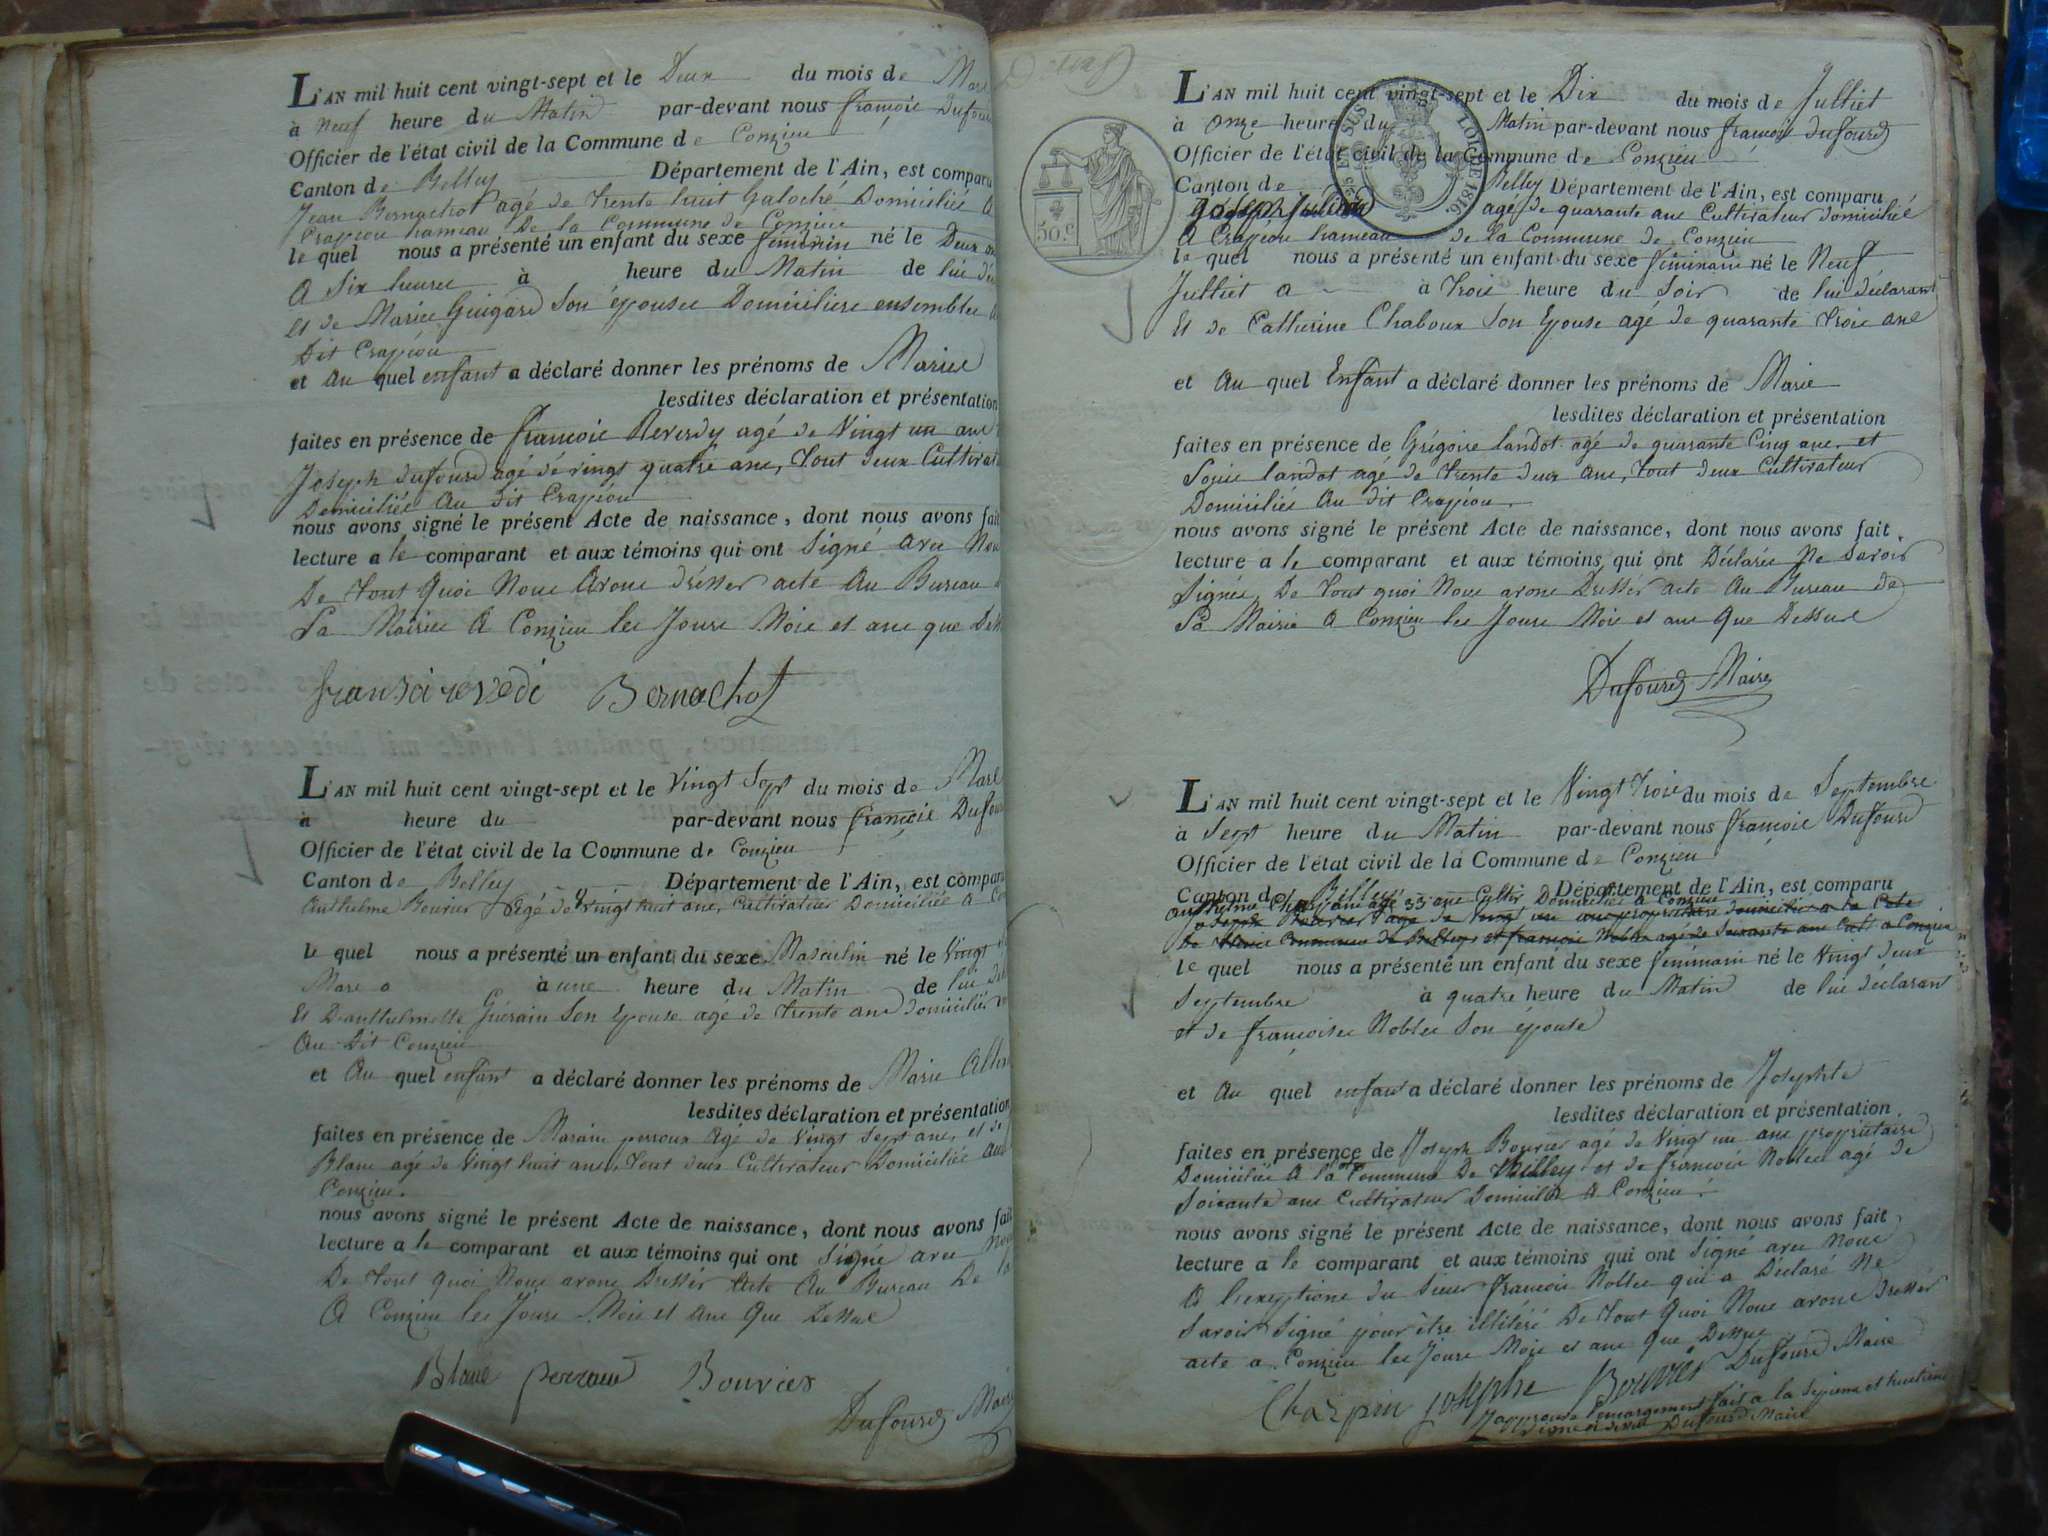 L'AN mil huit cent vingt-sept et le Deux du mois de Mars
à Neuf heure du Matin par-devant nous françois Dufour
Officier de l'état civil de la Commune de Conzieu
Canton de Belley Département de l'Ain, est comparu
Jean Bernachot agé de trente huit Galoché Domicilié A
Crapéou hameau De la Commune de Conzieu
le quel nous a présenté un enfant du sexe féminin né le Deux
A Six heures à heure du Matin de lui
et de Marie Guigard Son épousee Domiciliere ensembles
Dit Crapéou
et Au quel enfant a déclaré donner les prénoms de Mariee
lesdites déclaration et présentation
faites en présence de françois Reverdy agé de Vingt un ans
Joseph dufourd agé de vingt quatre ans, tout deux Cultivat
Domiciliés Au dit Crapéou
nous avons signé le présent Acte de naissance, dont nous avons fait
lecture a le comparant et aux témoins qui ont Signé avec Nous
De tout Quoi Nous Avons Drésser acte Au Bureau
La Mairiee A Conzieu les Jours Mois et ans que
fransoi revedi Bernachot
L'AN mil huit cent vingt-sept et le Vingt Sept du mois de Mars
à heure du par-devant nous francois Dufou
Officier de l'état civil de la Commune de Conzieu
Canton de Belley Département de l'Ain, est comparu
Anthelme Bouvier Agé de vingt huit ans, Cultivateur Domicilié A
le quel nous a présenté un enfant du sexe Masculin né le Vingt
Mars a à une heure du Matin de lui
Et D'anthelmette Guérain Son Epouse agé de trente ans domiciliés
Au Dit Conzieu
et Au quel enfant a déclaré donner les prénoms de Marie
lesdites déclaration et présentation
faites en présence de perroux Agé de Vingt Sept ans, et de
Blanc agé de Vingt huit ans, tout deux Cultivateur Domiciliés
Conzieu.
nous avons signé le présent Acte de naissance, dont nous avons fait
lecture a le comparant et aux témoins qui ont Signé avec Nous
De tout quoi Nous avons Dressér Acte Au Bureau De la
A Conzieu les Jours Mois et ans Que Dessus
Blanc perroux Bouvier
Dufourd Maire
50.c
LOI DE 1816
L'AN mil huit cent vingt-sept et le Dix du mois de Julliet
à onze heure du Matin par-devant nous francois dufourd
Officier de l'état civil de la Commune de Conzieu
Canton de Belley Département de l'Ain, est comparu
Joseph agé de quarante ans Cultivateur domicilié
A Crapéou hameau de la Commune de Conzieu
le quel nous a présenté un enfant du sexe féminain né le Neuf
Julliet a à trois heure du Soir de lui déclarant
Et de Catherine Chaboux Son Epouse agé de quarante trois ans
et Au quel Enfant a déclaré donner les prénoms de Marie
lesdites déclaration et présentation
faites en présence de Grégoire landot agé de quarante Cinq ans et
landot agé de trente deux ans, tout deux Cultivateur
Domiciliés Au dit Crapéou.
nous avons signé le présent Acte de naissance, dont nous avons fait
lecture a le comparant et aux témoins qui ont Déclarés Ne Savoir
Signée De tout quoi Nous avons Dressér acte Au Bureau de
La Mairie A Conzieu les Jours Mois et ans Que Dessus
Dufourd Maire
L'AN mil huit cent vingt-sept et le Vingt trois du mois de Septembre
à Sept heure du Matin par-devant nous francois Dufourd
Officier de l'état civil de la Commune de Conzieu
Canton de Belley Département de l'Ain, est comparu
anthelme agé 33 ans Cultiv Domicilié à Conzieu
Joseph Bouvier agé de Vingt un ans propriétaire domicilié a la
Commune de Belley et francois Noblee agé de Soixante ans Cult a Conzieu
le quel nous a présenté un enfant du sexe féminain né le Vingt deux
Septembre à quatre heure du Matin de lui déclarant
et de françoisee Noblee Son épouse
et Au quel enfant a déclaré donner les prénoms de Josephte
lesdites déclaration et présentation
faites en présence de Joseph Bouvier agé de Vingt un ans propriétaire
Domicilié A la Commune De Belley et de francois Noblee agé de
Soixante ans Cultivateur Domicilié A Conzieu.
nous avons signé le présent Acte de naissance, dont nous avons fait
lecture a le comparant et aux témoins qui ont Signé avec Nous
A l'exceptione du Sieur francois Noblee qui a Déclaré Ne
Savoir Signé pour être illitéré De tout Quoi Nous avons Dressér
acte a Conzieu les Jours Mois et ans Que Dessus
Charpin josephe Bouvier Dufourd Maire
fait a la Septieme et huitieme
Dufourd Maire